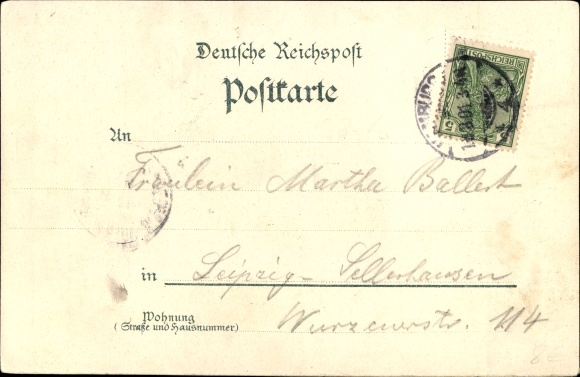 Deutsche Reichspost
Postkarte
REICHSPOST
5 5
An
Fräulein Martha Ballert
in Leipzig-Sellerhausen
Wohnung
(Straße und Hausnummer)
Wurzenerstr. 114